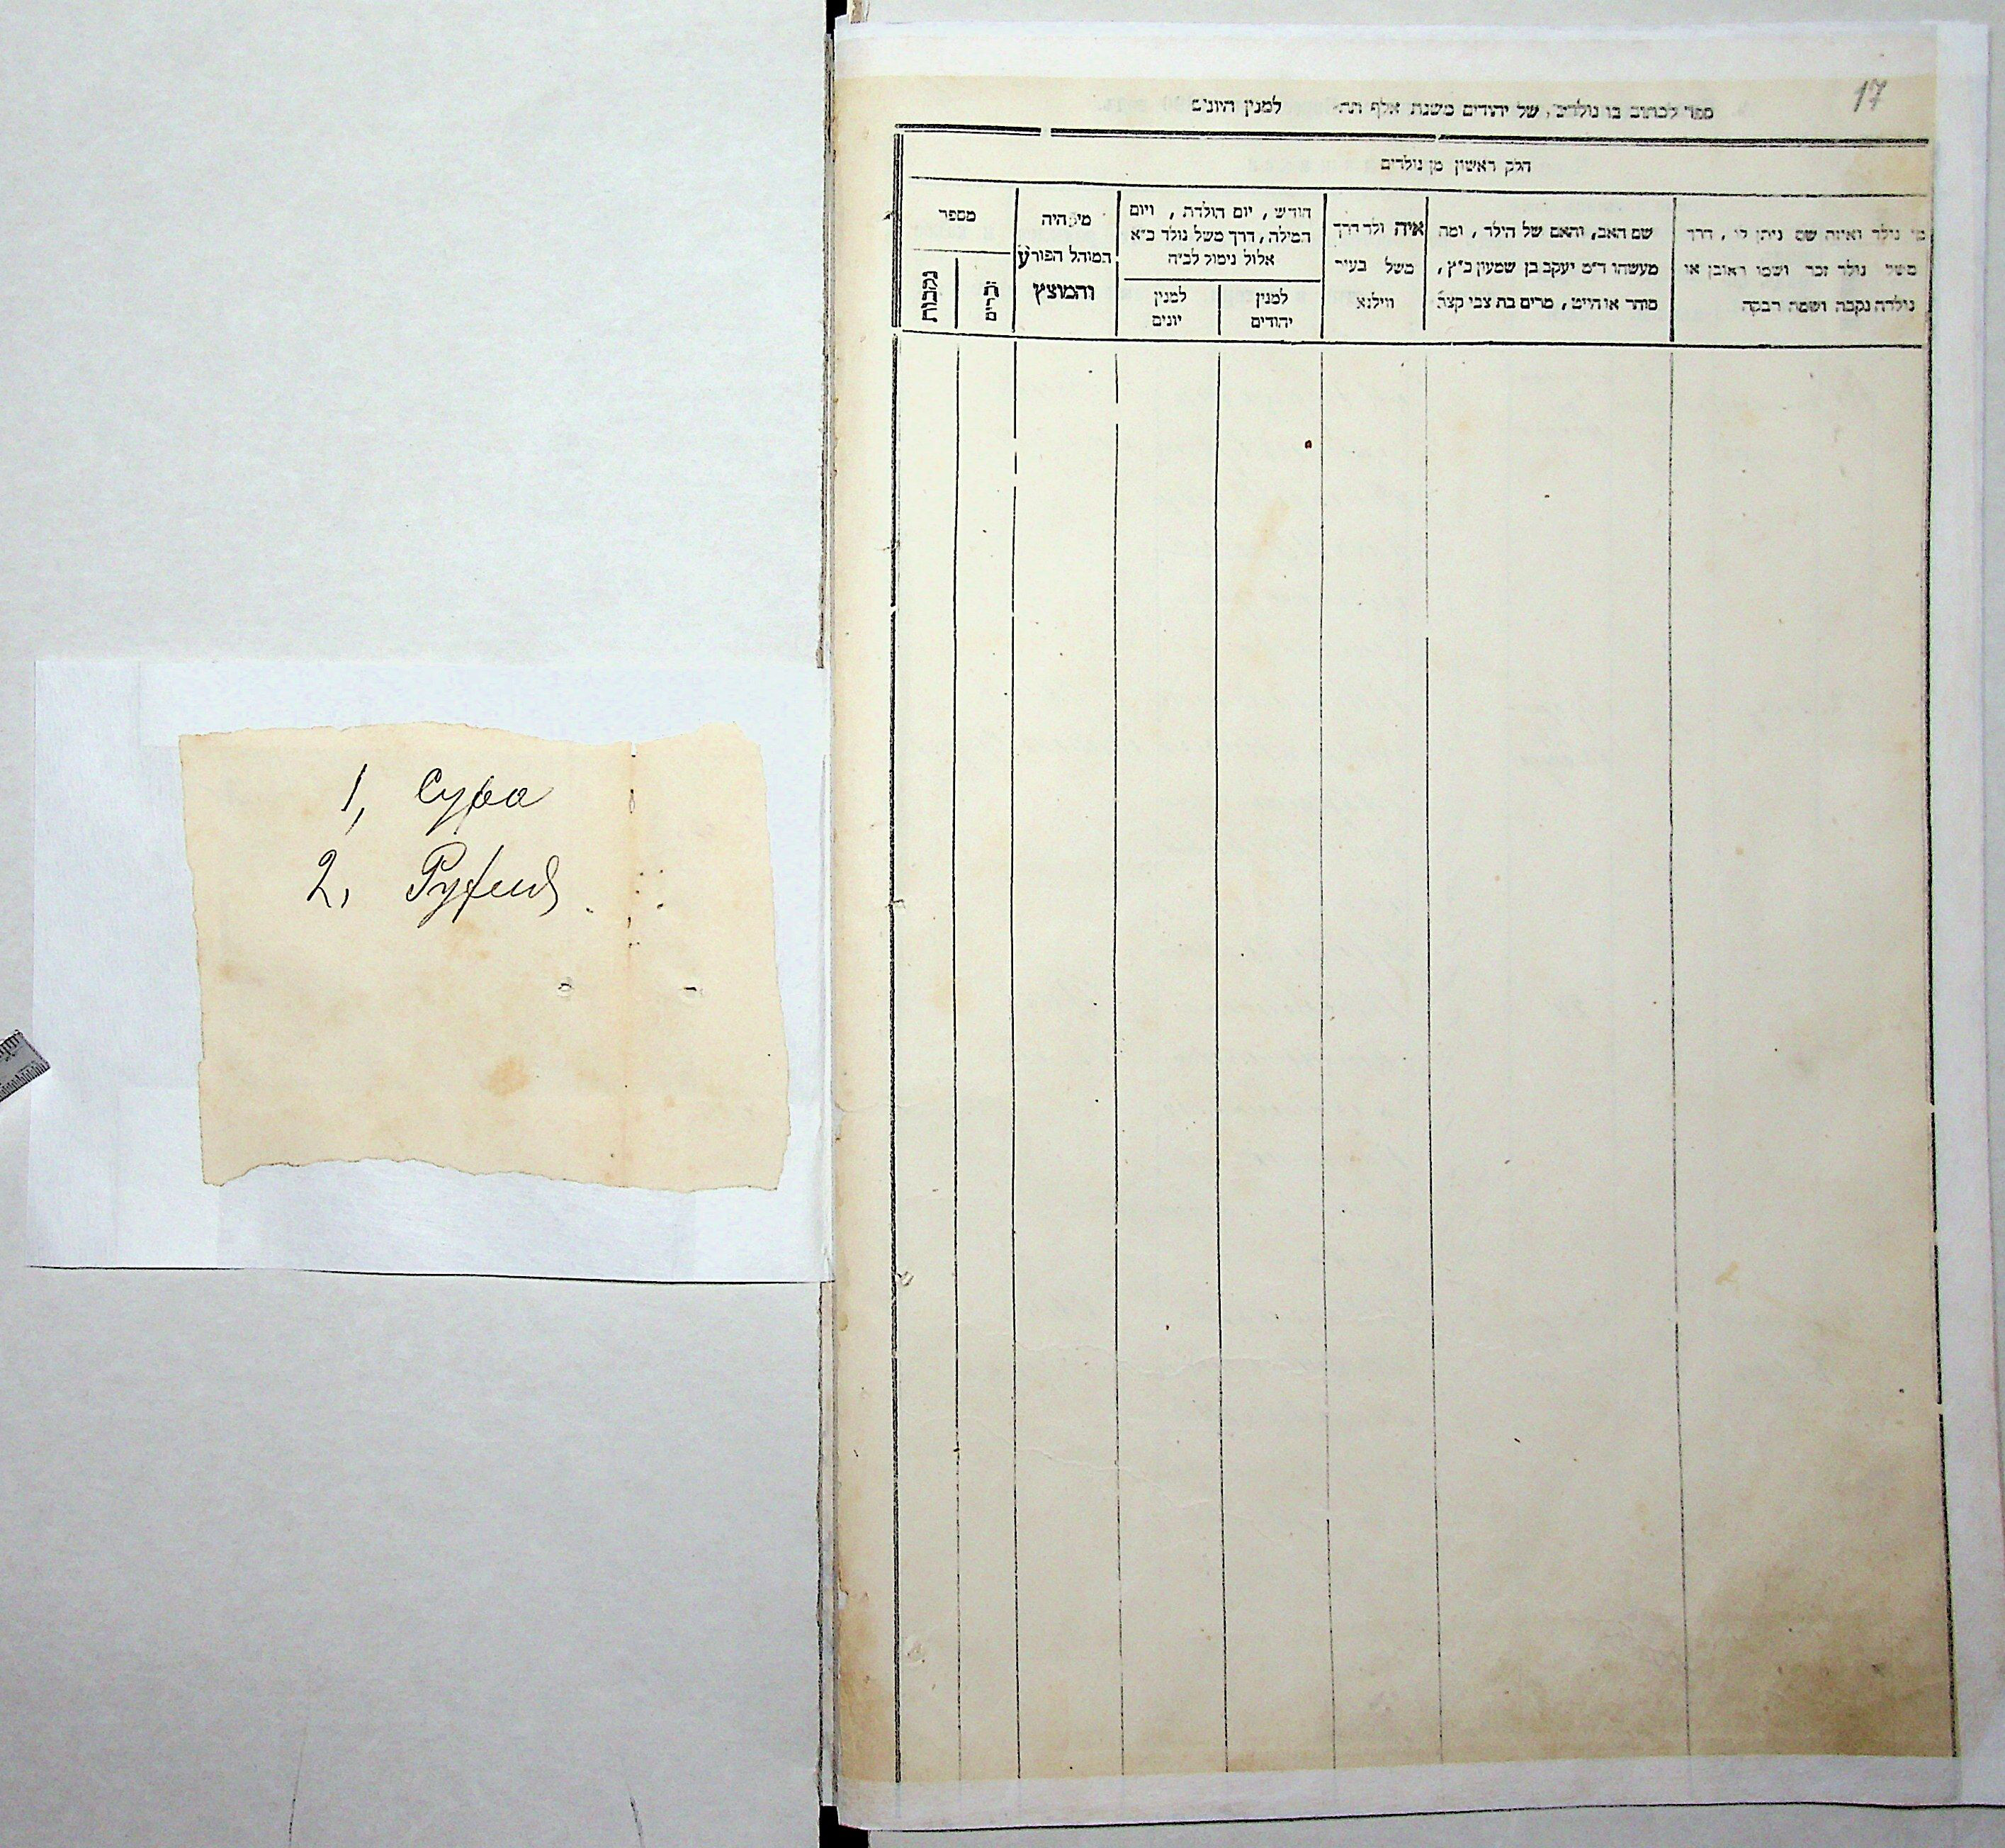 1, Сура
2, Руфинъ.
17
ספר לכתוב בו נולדים, של יהודים משנת אלף ותת למנין היונים
חלק ראשון מן נולדים
מי נולד ואיזה שם ניתן לו, דרך
משל נולד זכר ושמו ראובן או
נולדה נקבה ושמה רבקה
שם האב, והאם של הילד, ומה
מעשהו ד״מ יעקב בן שמעון כ״ץ,
סוחר או חייט, מרים בת צבי קצב
איה ולד דרך
משל בעיר
ווילנא
חודש, יום הולדת, ויום
המילה, דרך משל נולד כ״א
אלול נימול לכ״ה
למנין
יהודים
למנין
יונים
מי היה
המוהל הפורע
והמוצץ
מספר
זכרים
נקבות